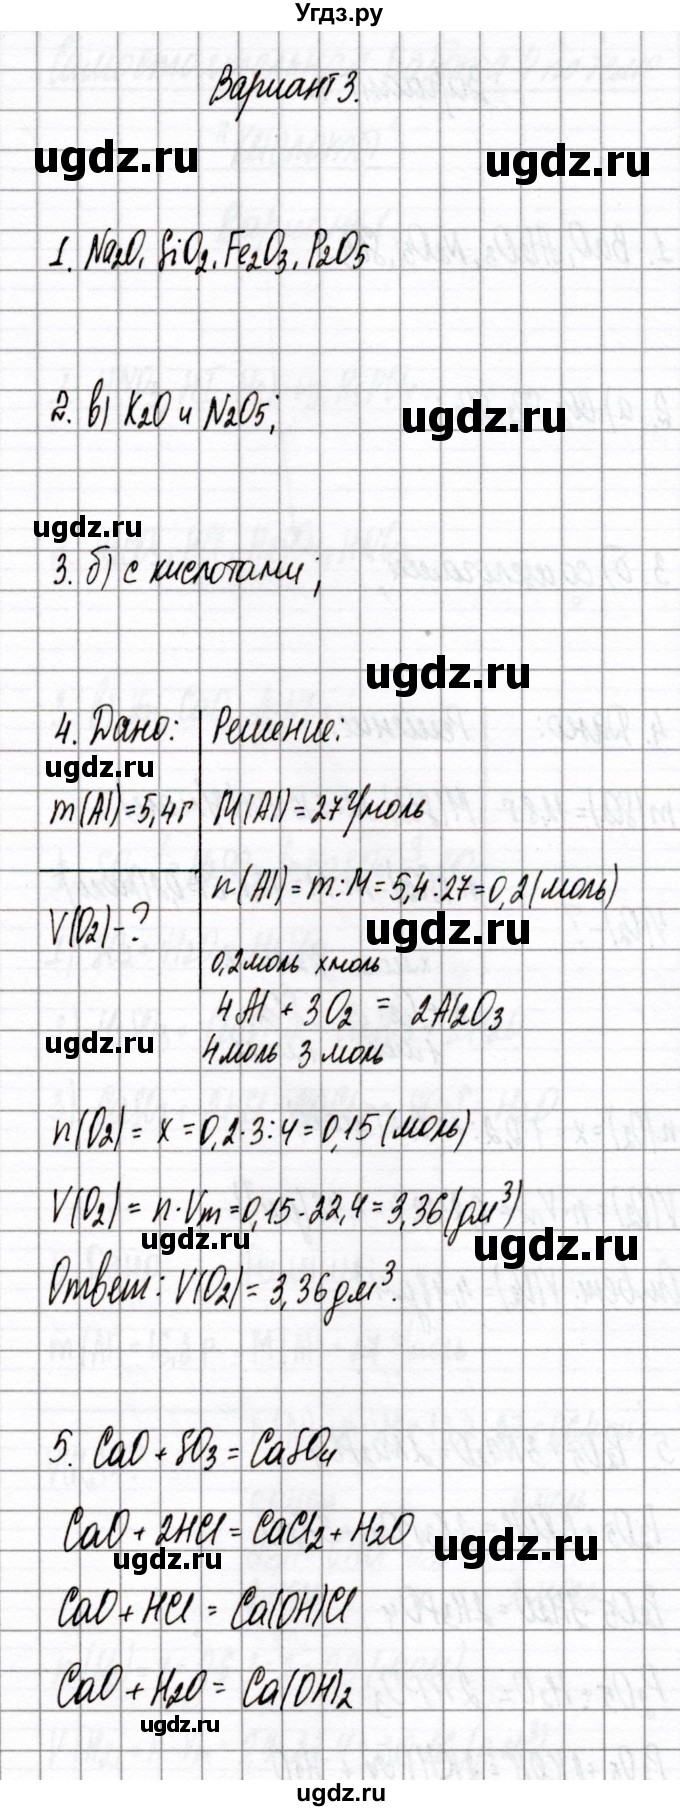 Угдз.ру
Вариант 3.
ugdz.ru
ugdz.ru
1. Na2O, SiO2, Fe2O3, P2O5
2. в) K2O и N2O5;
ugdz.ru
ugdz.ru
3. б) с кислотами;
ugdz.ru
4. Дано: Решение:
ugdz.ru
m(Al)=5,4г M(Al)=27г/моль
n(Al)=m:M=5,4:27=0,2(моль)
V(O2)-?
ugdz.ru
0,2моль xмоль
4Al + 3O2 = 2Al2O3
ugdz.ru
4моль 3 моль
n(O2)=x=0,2·3:4=0,15(моль)
V(O2)=n·Vm=0,15·22,4=3,36(дм³)
ugdz.ru
ugdz.ru
Ответ: V(O2)=3,36дм³.
5. CaO+SO3=CaSO4
CaO+2HCl=CaCl2+H2O
ugdz.ru
ugdz.ru
CaO+HCl=Ca(OH)Cl
CaO+H2O=Ca(OH)2
ugdz.ru
ugdz.ru